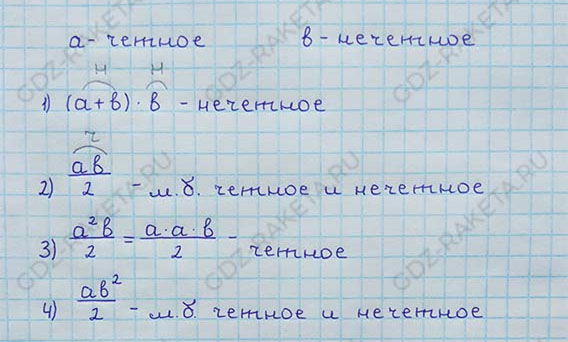 а - четное в - нечетное
н н
1) (а+в) · в - нечетное
ч
2) ав/2 - м.б. четное и нечетное
3) а²в/2 = а·а·в/2 - четное
4) ав²/2 - м.б. четное и нечетное
GDZ-RAKETA.RU